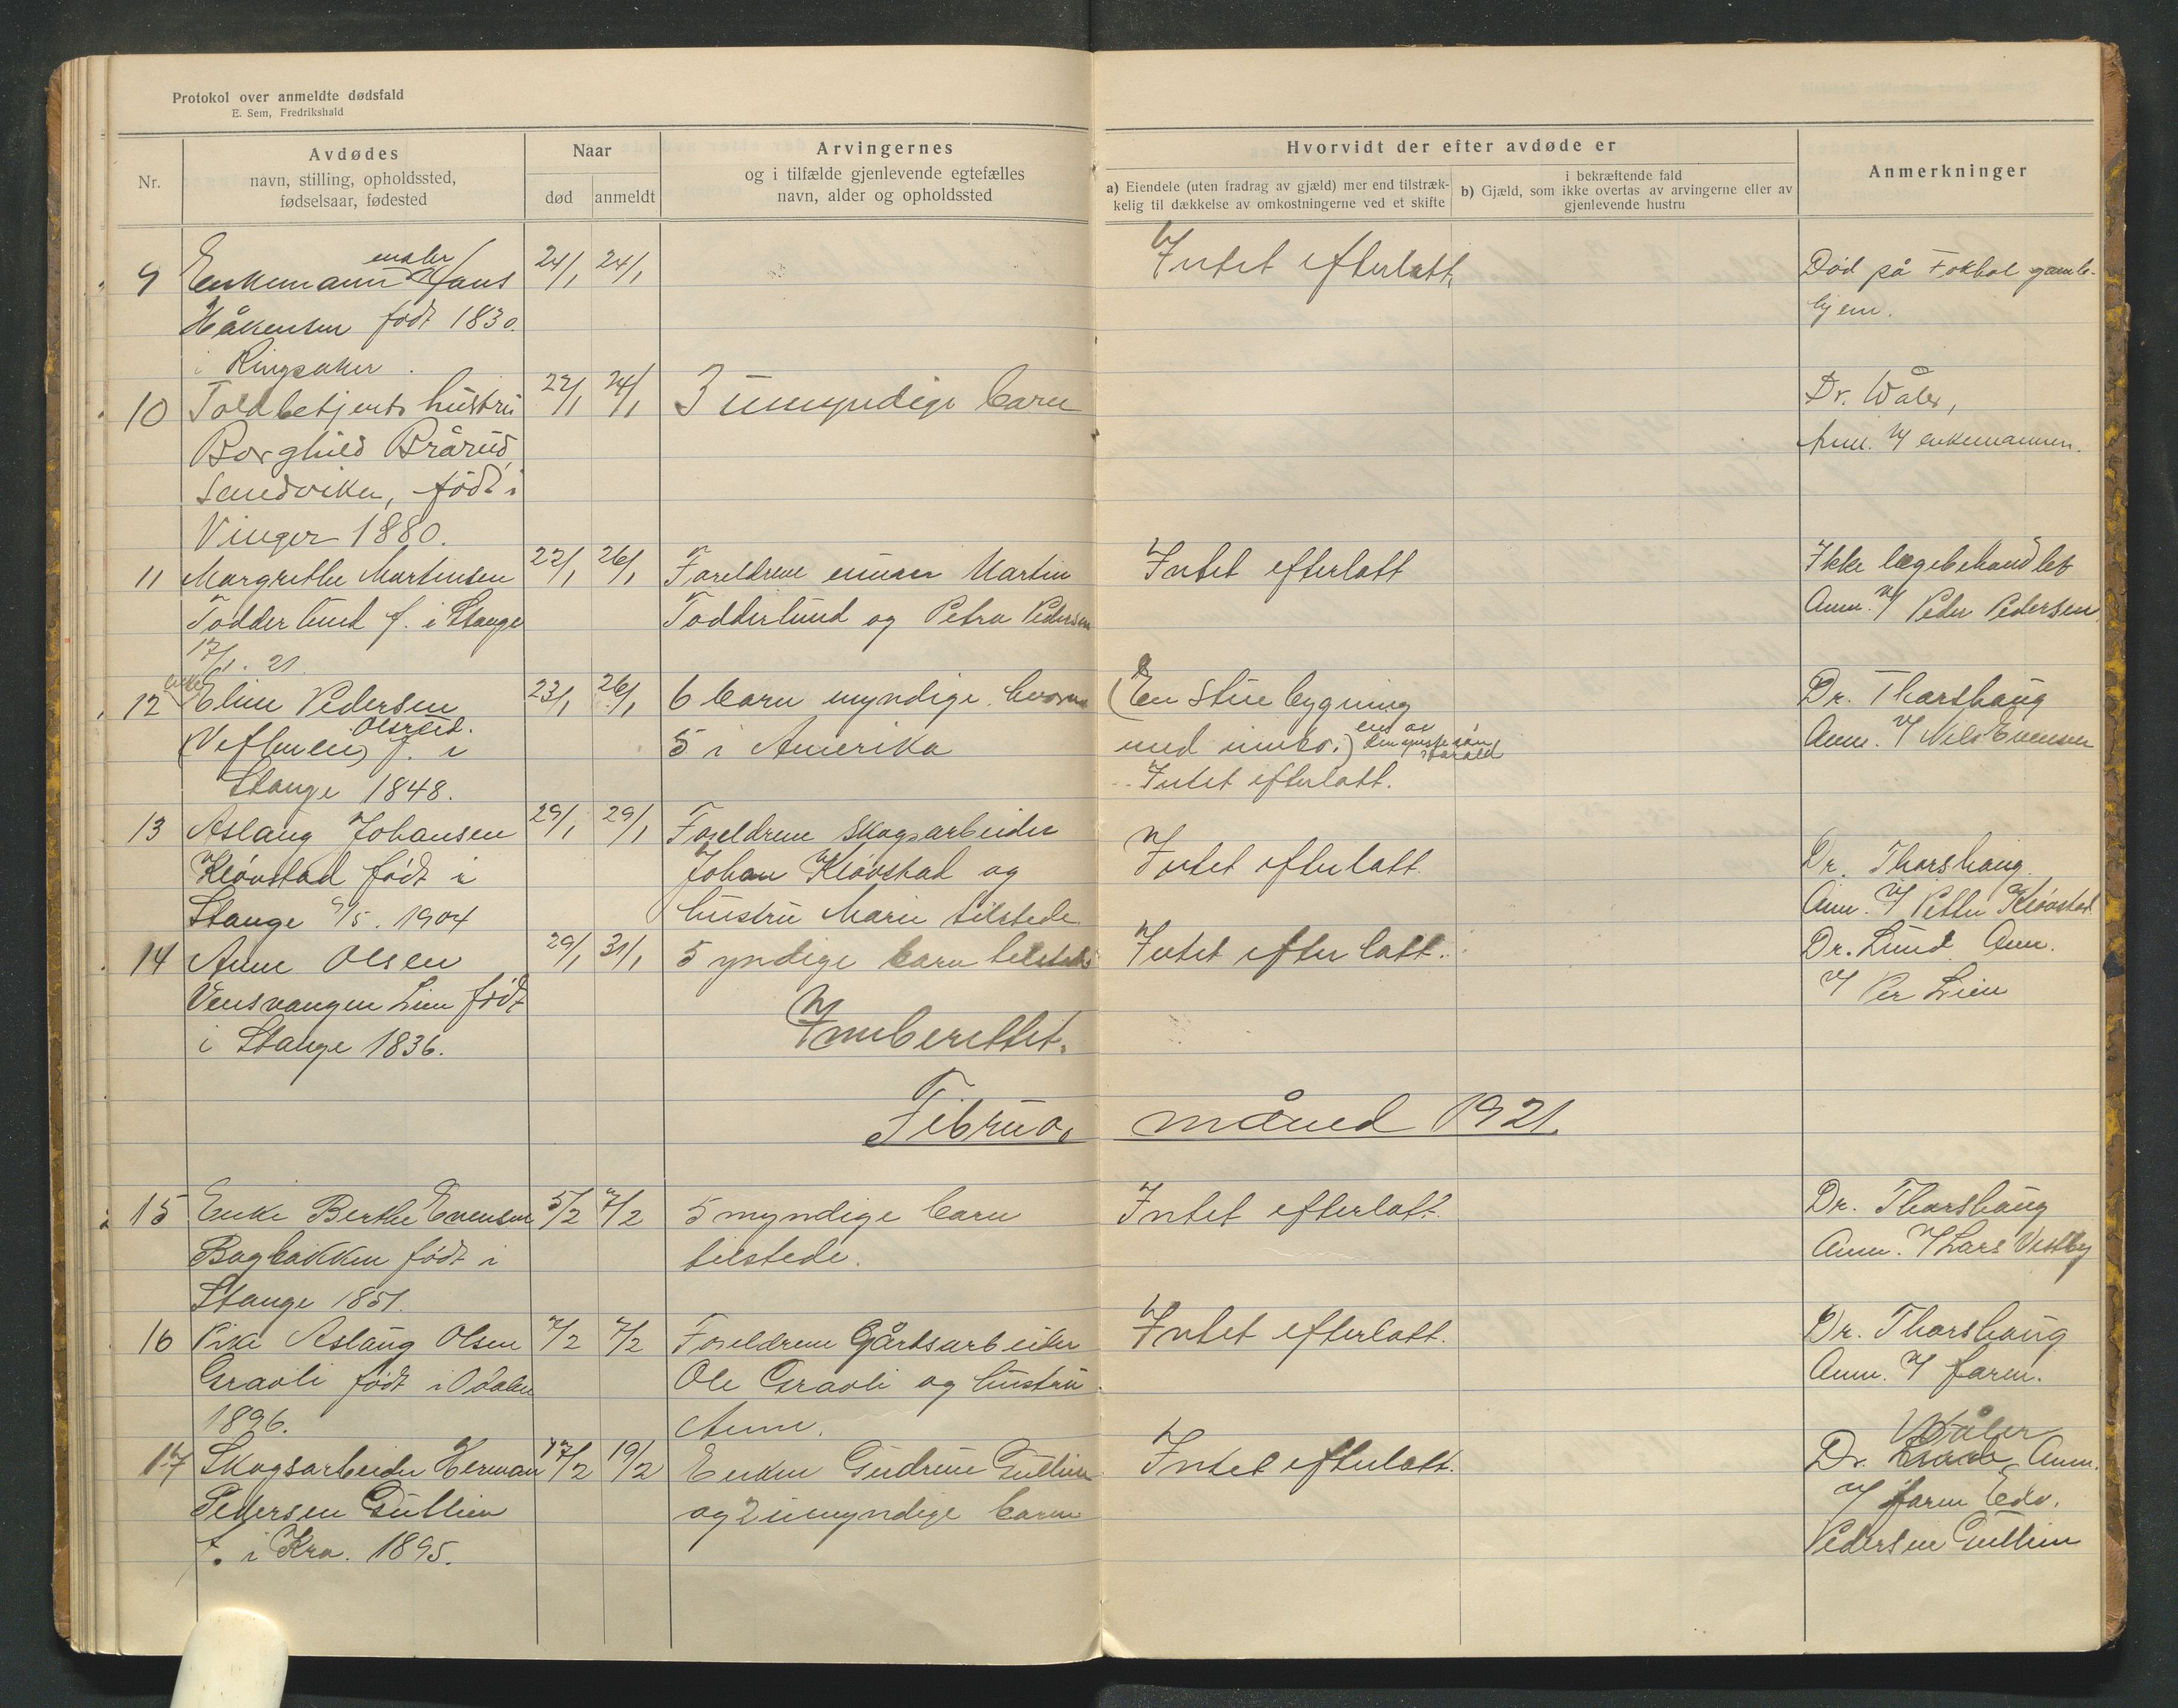 Protokol over anmeldte dødsfald
E. Sem, Fredrikshald
Nr.
Avdødes
navn, stilling, opholdssted,
fødselsaar, fødested
Naar
død
anmeldt
Arvingernes
og i tilfælde gjenlevende egtefælles
navn, alder og opholdssted
Hvorvidt der efter avdøde er
a) Eiendele (uten fradrag av gjæld) mer end tilstræk-
kelig til dækkelse av omkostningerne ved et skifte
i bekræftende fald
b) Gjæld, som ikke overtas av arvingerne eller av
gjenlevende hustru
Anmerkninger
9 Enkemann maler Hans 24/1 24/1 Intet efterlatt. Død på Fokhol gamle-
Håkensen født 1830. hjem.
i Ringsaker.
10 Toldbetjents hustru 22/1 24/1 3 umyndige barn Dr. Wåler,
Borghild Brårud, Anm. v/ enkemannen.
Sandviken, født i
Vinger 1880.
11 Margrethe Martinsen 22/1 26/1 Foreldrene Martin Intet efterlatt Ikke lægebehandlet
Todderlund f. i Stange Todderlund og Petra Pedersen Anm. v/ Peder Pedersen
17/1. 21
12 enke Eline Pedersen 23/1 26/1 6 barn myndige hvorav (En Stue bygning Dr. Thorshaug
Olsreid. f. i 5 i Amerika med innbo.) en av den yngste søn Harald Anm. v/ Nils Evensen
Stange 1848. Intet efterlatt.
13 Aslaug Johansen 29/1 29/1 Foreldrene skogsarbeider Intet efterlatt. Dr. Thorshaug.
Kløvstad født i Johan Kløvstad og Anm. v/ Petter Kløvstad
Stange 9/5. 1904 hustru Marie tilstede.
14 Anne Olsen 29/1 31/1 5 yndige barn tilstede Intet efterlatt. Dr. Lund Anm.
Lien født v/ Per Lien
i Stange 1836.
Innberettet.
Februar måned 1921.
15 Enke Berthe Evensen 5/2 7/2 5 myndige barn Intet efterlatt. Dr. Thorshaug
Bagbakken født i tilstede. Anm. v/ Lars Vestby
Stange 1851.
16 Pike Aslaug Olsen 7/2 7/2 Foreldrene Gårdsarbeider Intet efterlatt. Dr. Thorshaug
Gravli født i Odalen Ole Gravli og hustru Anm. v/ faren.
1896. Anne.
17 Skogsarbeider Herman 17/2 19/2 Enken Gudrun Gullien Intet efterlatt. Dr. Wåler Anm.
Pedersen Gullien og 2 umyndige barn v/ faren Edv.
f. i Kra. 1895. Pedersen Gullien